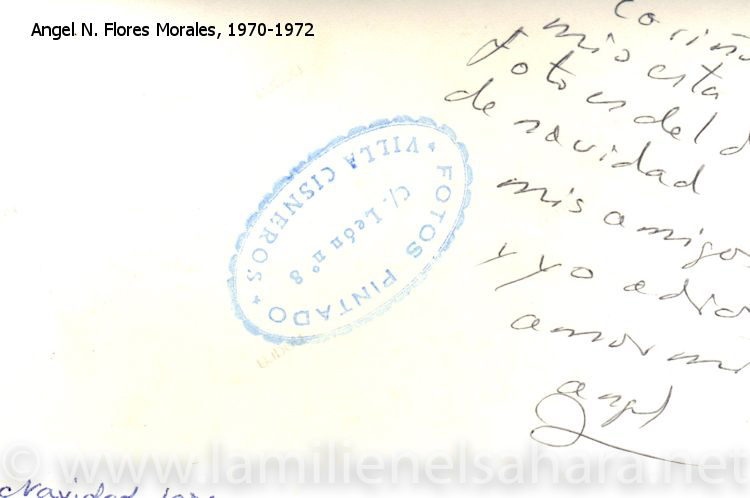 Angel N. Flores Morales, 1970-1972
Cariño
mio esta
foto es del d
de navidad
mis amigos
y yo adios
amor mio
angel
FOTOS PINTADO
C/. León nº 8
* VILLA CISNEROS *
Navidad
© www.lamilienelsahara.net